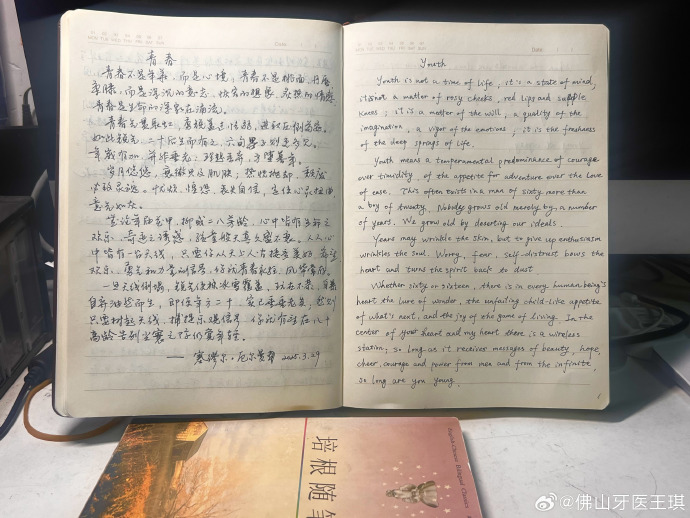 青春
青春不是年华，而是心境；青春不是桃面、丹唇、
柔膝，而是深沉的意志，恢宏的想象，炙热的情感；
青春是生命的深泉在涌流。
青春气贯长虹，勇锐盖过怯弱，进取压倒苟安。
如此锐气，二十后生而有之，六旬男子则更多见。
年岁有加，并非垂老；理想丢弃，方堕暮年。
岁月悠悠，衰微只及肌肤；热忱抛却，颓废
必致灵魂。忧烦，惶恐，丧失自信，定使心灵扭曲
意气如灰。
无论年届花甲，抑或二八芳龄，心中皆有生命之
欢乐，奇迹之诱惑，孩童般天真久盛不衰。人人心
中皆有一台天线，只要你从天上人间接受美好、希望
欢乐、勇气和力量的信号，你就青春永驻，风华常存。
一旦天线倒塌，锐气便被冰雪覆盖，玩世不恭、自暴
自弃油然而生，即使年方二十，实已垂垂老矣；然则
只要树起天线，捕捉乐观信号，你就有望在八十
高龄告别尘寰之际仍觉年轻。
——塞缪尔·厄尔曼 2025.3.29
Date
Youth
Youth is not a time of life, it is a state of mind,
it is not a matter of rosy cheeks, red lips and supple
knees; it is a matter of the will, a quality of the
imagination, a vigor of the emotions; it is the freshness
of the deep springs of life.
Youth means a temperamental predominance of courage
over timidity of the appetite for adventure over the love
of ease. This often exists in a man of sixty more than
a boy of twenty. Nobody grows old merely by a number
of years. We grow old by deserting our ideals.
Years may wrinkle the skin, but to give up enthusiasm
wrinkles the soul. Worry, fear, self-distrust bows the
heart and turns the spirit back to dust.
Whether sixty or sixteen, there is in every human being's
heart the lure of wonder, the unfailing child-like appetite
of what's next, and the joy of the game of living. In the
center of your heart and my heart there is a wireless
station; so long as it receiver messages of beauty, hope,
cheer, courage and power from men and from the infinite,
so long are you young.
Date
培根随笔
English-Chinese Bilingual Classics
@佛山牙医王琪